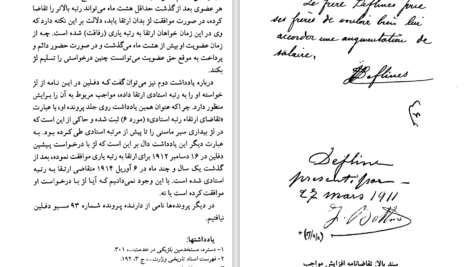 هر عضوی بعد از گذشت حداقل هشت ماه می‌تواند رتبه بالاتر را تقاضا
کرده، در صورت موافقت لژ بدان ارتقا یابد، دلالت بر این نکته دارد که
وی در این زمان خواهان ارتقا به رتبه یاری (رفاقت) شده است. چه از
زمان عضویت او بیش از هشت ماه می‌گذشت و در صورت حضور دائم و
پرداخت به موقع حق عضویت می‌توانست چنین درخواستی را تسلیم لژ
بکند.
درباره یادداشت دوم نیز می‌توان گفت که دفلین در این نامه از لژ
خواسته او را به رتبه استادی ارتقا داده، مواجب مربوط به آن را برایش
منظور دارد. چرا که عنوان همین یادداشت روی جلد پرونده او، با عبارت
«تقاضای ارتقاء رتبه استادی» (مورد ۶) ثبت شده و حاکی از این است که
در لژ بیداری سیر ماسنی را تا پیش از مرتبه استادی طی کرده بود. به
عبارت دیگر این یادداشت دال بر این است که لژ با درخواست پیشین
دفلین در ۱۶ دسامبر ۱۹۱۲ برای ارتقا به رتبه یاری موافقت نموده، بعد از
گذشت یک سال و چند ماه در ۶ آوریل ۱۹۱۴ متقاضی ارتقا به رتبه
استادی شده است. با این وجود نمی‌دانیم که آیا لژ با درخواست او
موافقت کرده است یا نه.
در دیگر پرونده‌ها نامی از دارنده پرونده شماره ۹۳ مسیو دفلین
نیافتیم.
یادداشتها:
۱- دستره، مستخدمین بلژیکی در خدمت... ۳۰۱.
۲- فهرست اسناد تاریخی وزارت... ج ۳، ۱۹۲.
Le frère Deflines prie
ses frères de vouloir bien lui
accorder une augmentation de
salaire.
Deflines
Defline
présenté par
27 mars 1911
سند بالا: تقاضانامه افزایش مواجب